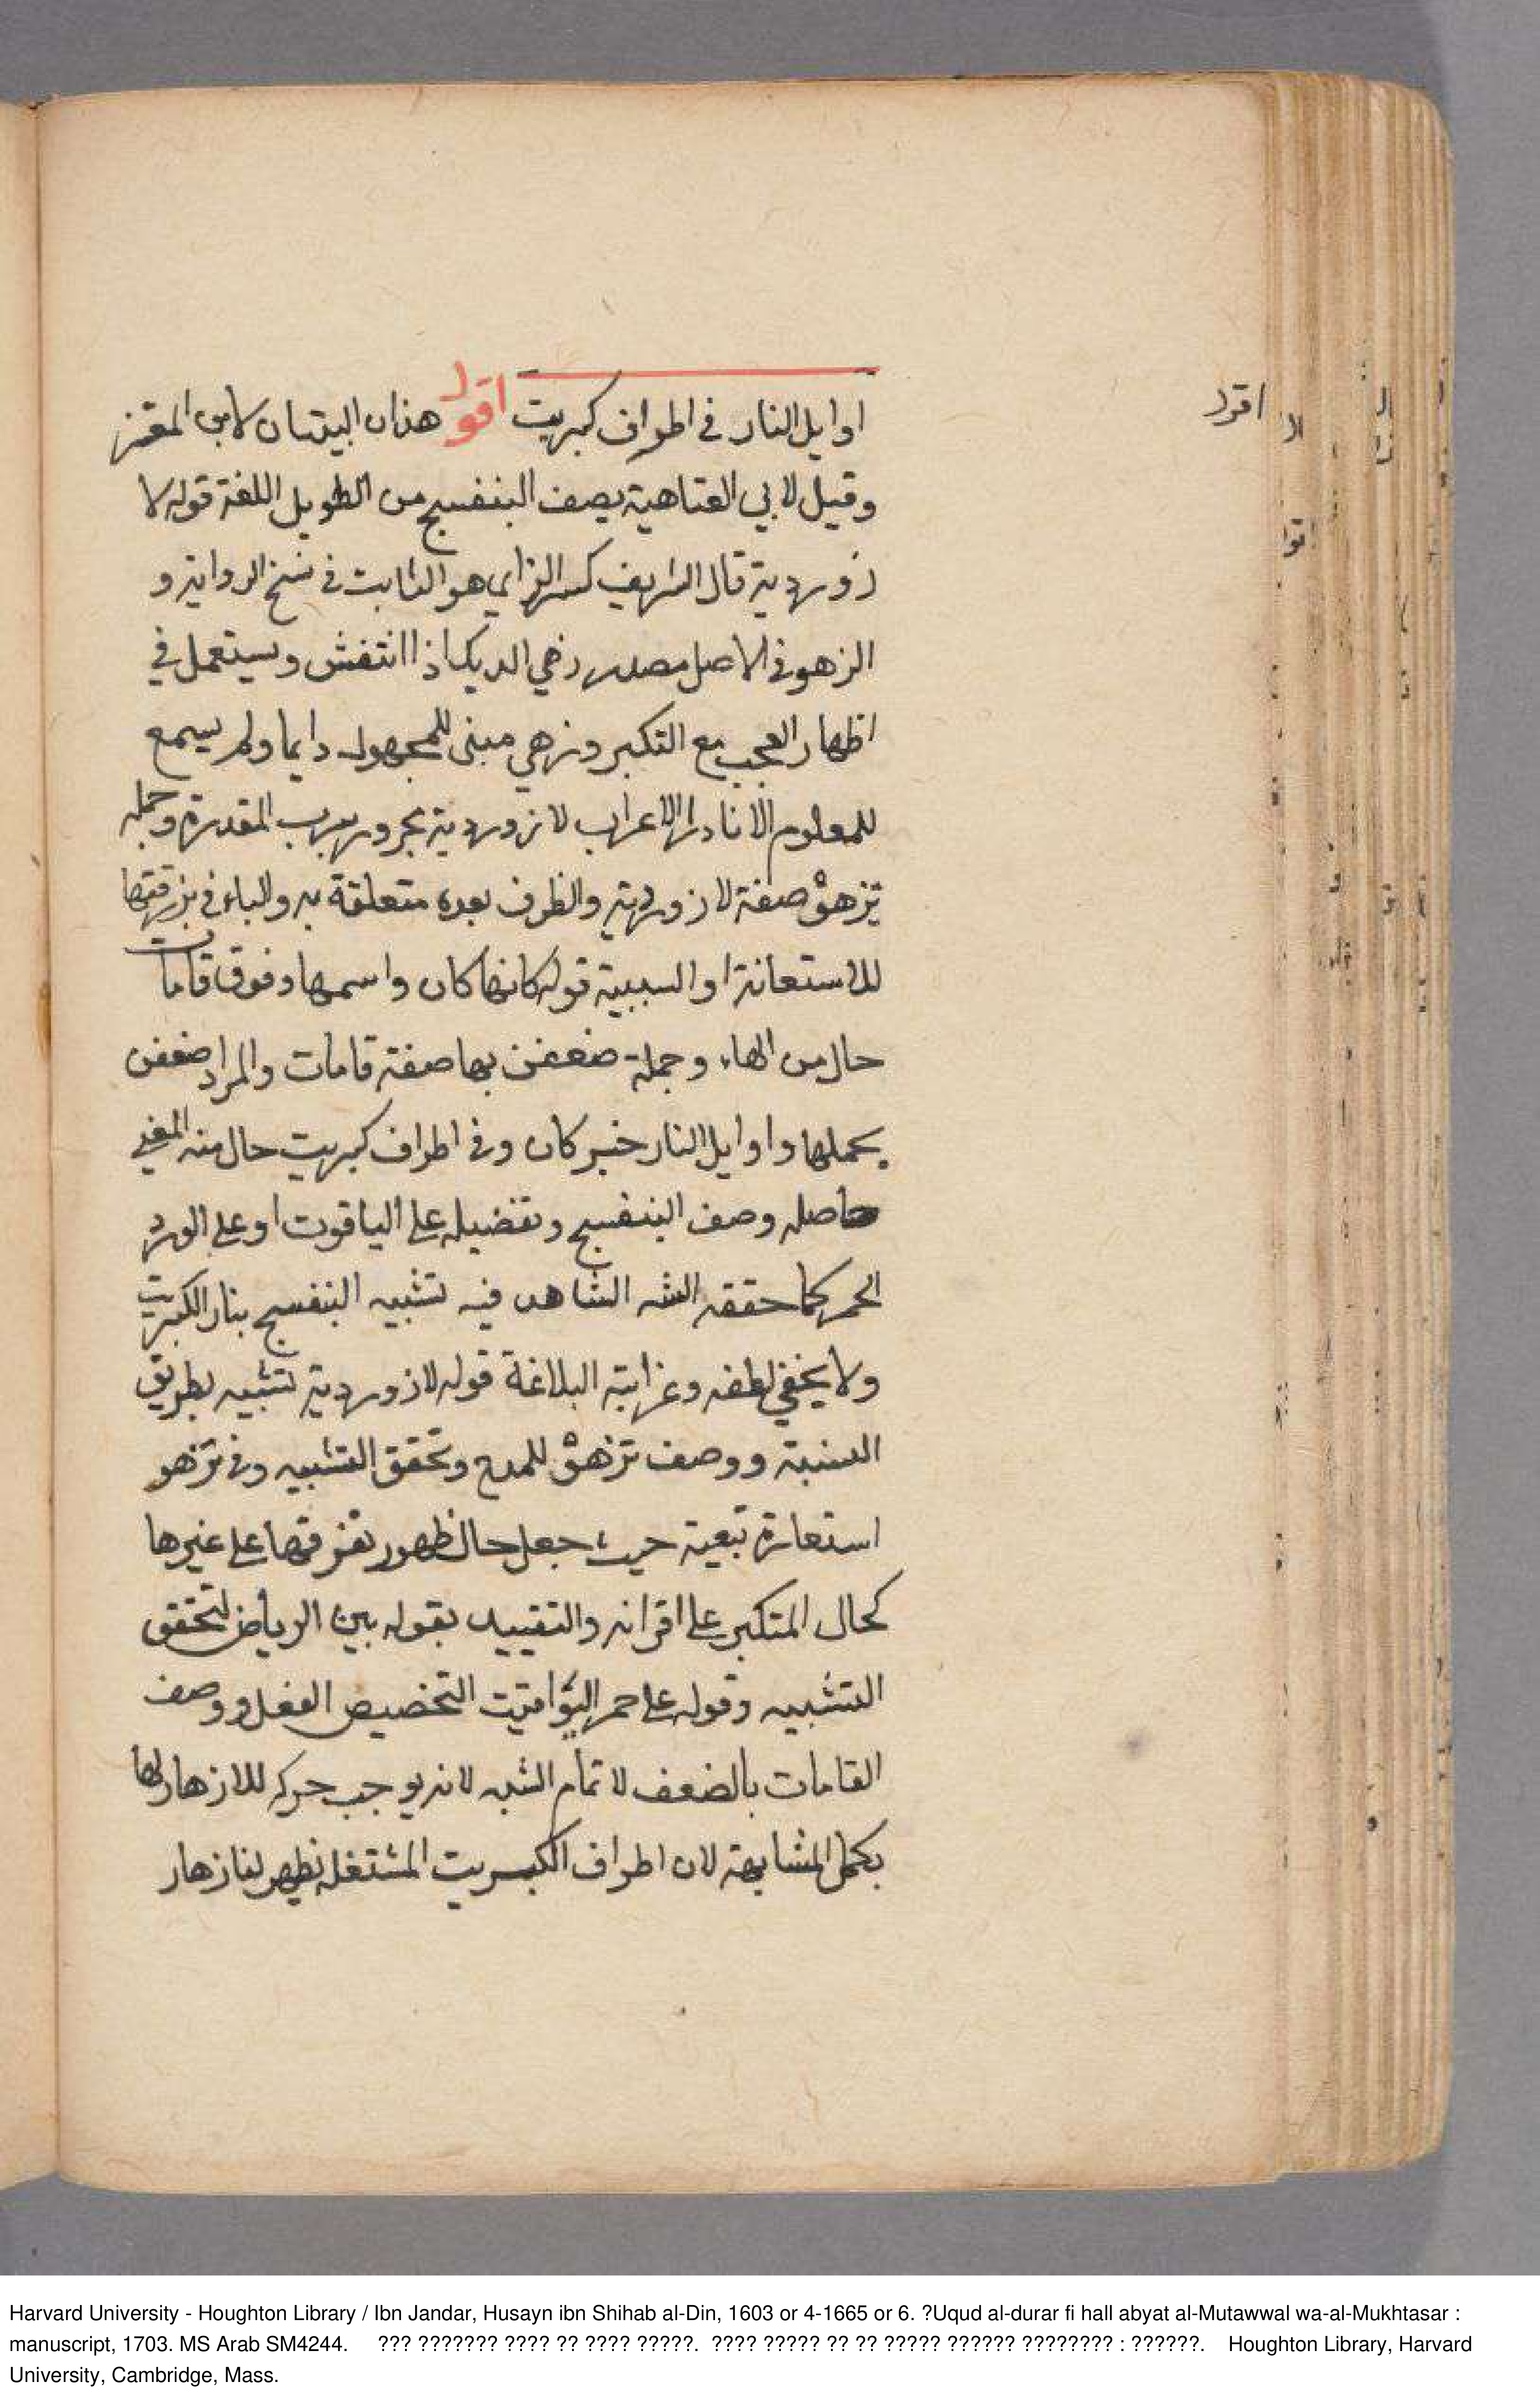 اوايل النار في اطراف كبريت اقول هذان البيتان لابن المعتز
وقيل لابي العتاهية يصف البنفسج من الطويل اللغة قوله لا
زوردية قال الشريف كسر الزاي هو الثابت في نسخ الرواية و
الزهو في الاصل مصدر زهي الديك اذا انتفش ويستعمل في
اظهار العجب مع التكبر وزهي مبنى للمجهول دايما ولم يسمع
للمعلوم الا نادرا الاعراب لازوردية مجرور برب المقدرة وجملة
تزهوْ صفة لازوردية والظرف بعده متعلقة به والباء في بزرقتها
للاستعانة او السببية قوله كانها كان واسمها وفوق قامات
حال من الهاء وجملة ضعفن بها صفة قامات والمراد ضعفن
بحملها واوايل النار خبر كان وفي اطراف كبريت حال منه المعني
حاصله وصف البنفسج وتفضيله على الياقوت او على الورد
الحمر كما حققه الشه الشاهد فيه تشبيه البنفسج بنار الكبريت
ولا يخفي لطفه وغرابته البلاغة قوله لازوردية تشبيه بطريق
النسبة ووصف تزهوْ للمدح وتحقق التشبيه وفي تزهو
استعارة تبعية حيث جعل حال ظهور تفوقها على غيرها
كحال المتكبر على اقرانه والتقييد بقوله بين الرياض لتحقق
التشبيه وقوله على حمر اليواقيت التخصيص الفعل ووصف
القامات بالضعف لا تمام الشبه لانه يوجب حركه للازهار لها
يكمل المشابهة لان اطراف الكبريت المشتعله نظهر لنا زهار
اقول
Harvard University - Houghton Library / Ibn Jandar, Husayn ibn Shihab al-Din, 1603 or 4-1665 or 6. ?Uqud al-durar fi hall abyat al-Mutawwal wa-al-Mukhtasar :
manuscript, 1703. MS Arab SM4244. ??? ??????? ???? ?? ???? ?????. ???? ????? ?? ?? ????? ?????? ???????? : ??????. Houghton Library, Harvard
University, Cambridge, Mass.